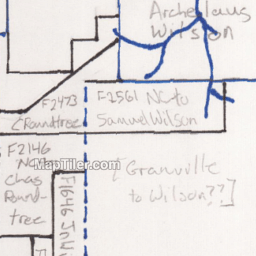 Archelaus
Wilson
F2473
(Roundtree
F2561 NC to
Samuel Wilson
F2146
NC
Chas
Round-
tree
MapTiler.com
[Granville
to Wilson??]
F1646